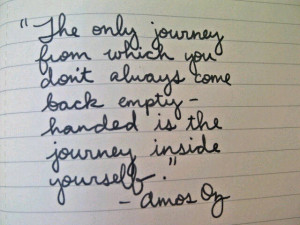 "The only journey
from which you
don't always come
back empty-
handed is the
journey inside
yourself."
- Amos Oz